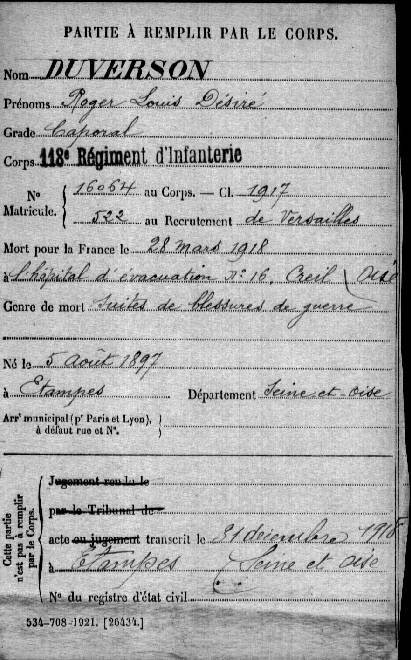 PARTIE À REMPLIR PAR LE CORPS.
Nom DUVERSON
Prénoms Roger Louis Désiré
Grade Caporal
Corps 118e Régiment d'Infanterie
No Matricule. 16064 au Corps. — Cl. 1917
522 au Recrutement de Versailles
Mort pour la France le 28 mars 1918
à l'hôpital d'évacuation No 16, Creil (Oise
Genre de mort Suites de blessures de guerre
Né le 5 Août 1897
à Etampes Département Seine-et-Oise
Arrt municipal (pr Paris et Lyon),
à défaut rue et No.
Cette partie
n'est pas à remplir
par le Corps.
Jugement rendu le
par le Tribunal de
acte ou jugement transcrit le 31 décembre 1918
à Etampes (Seine et Oise
No du registre d'état civil
534-708-1921. [26434.]